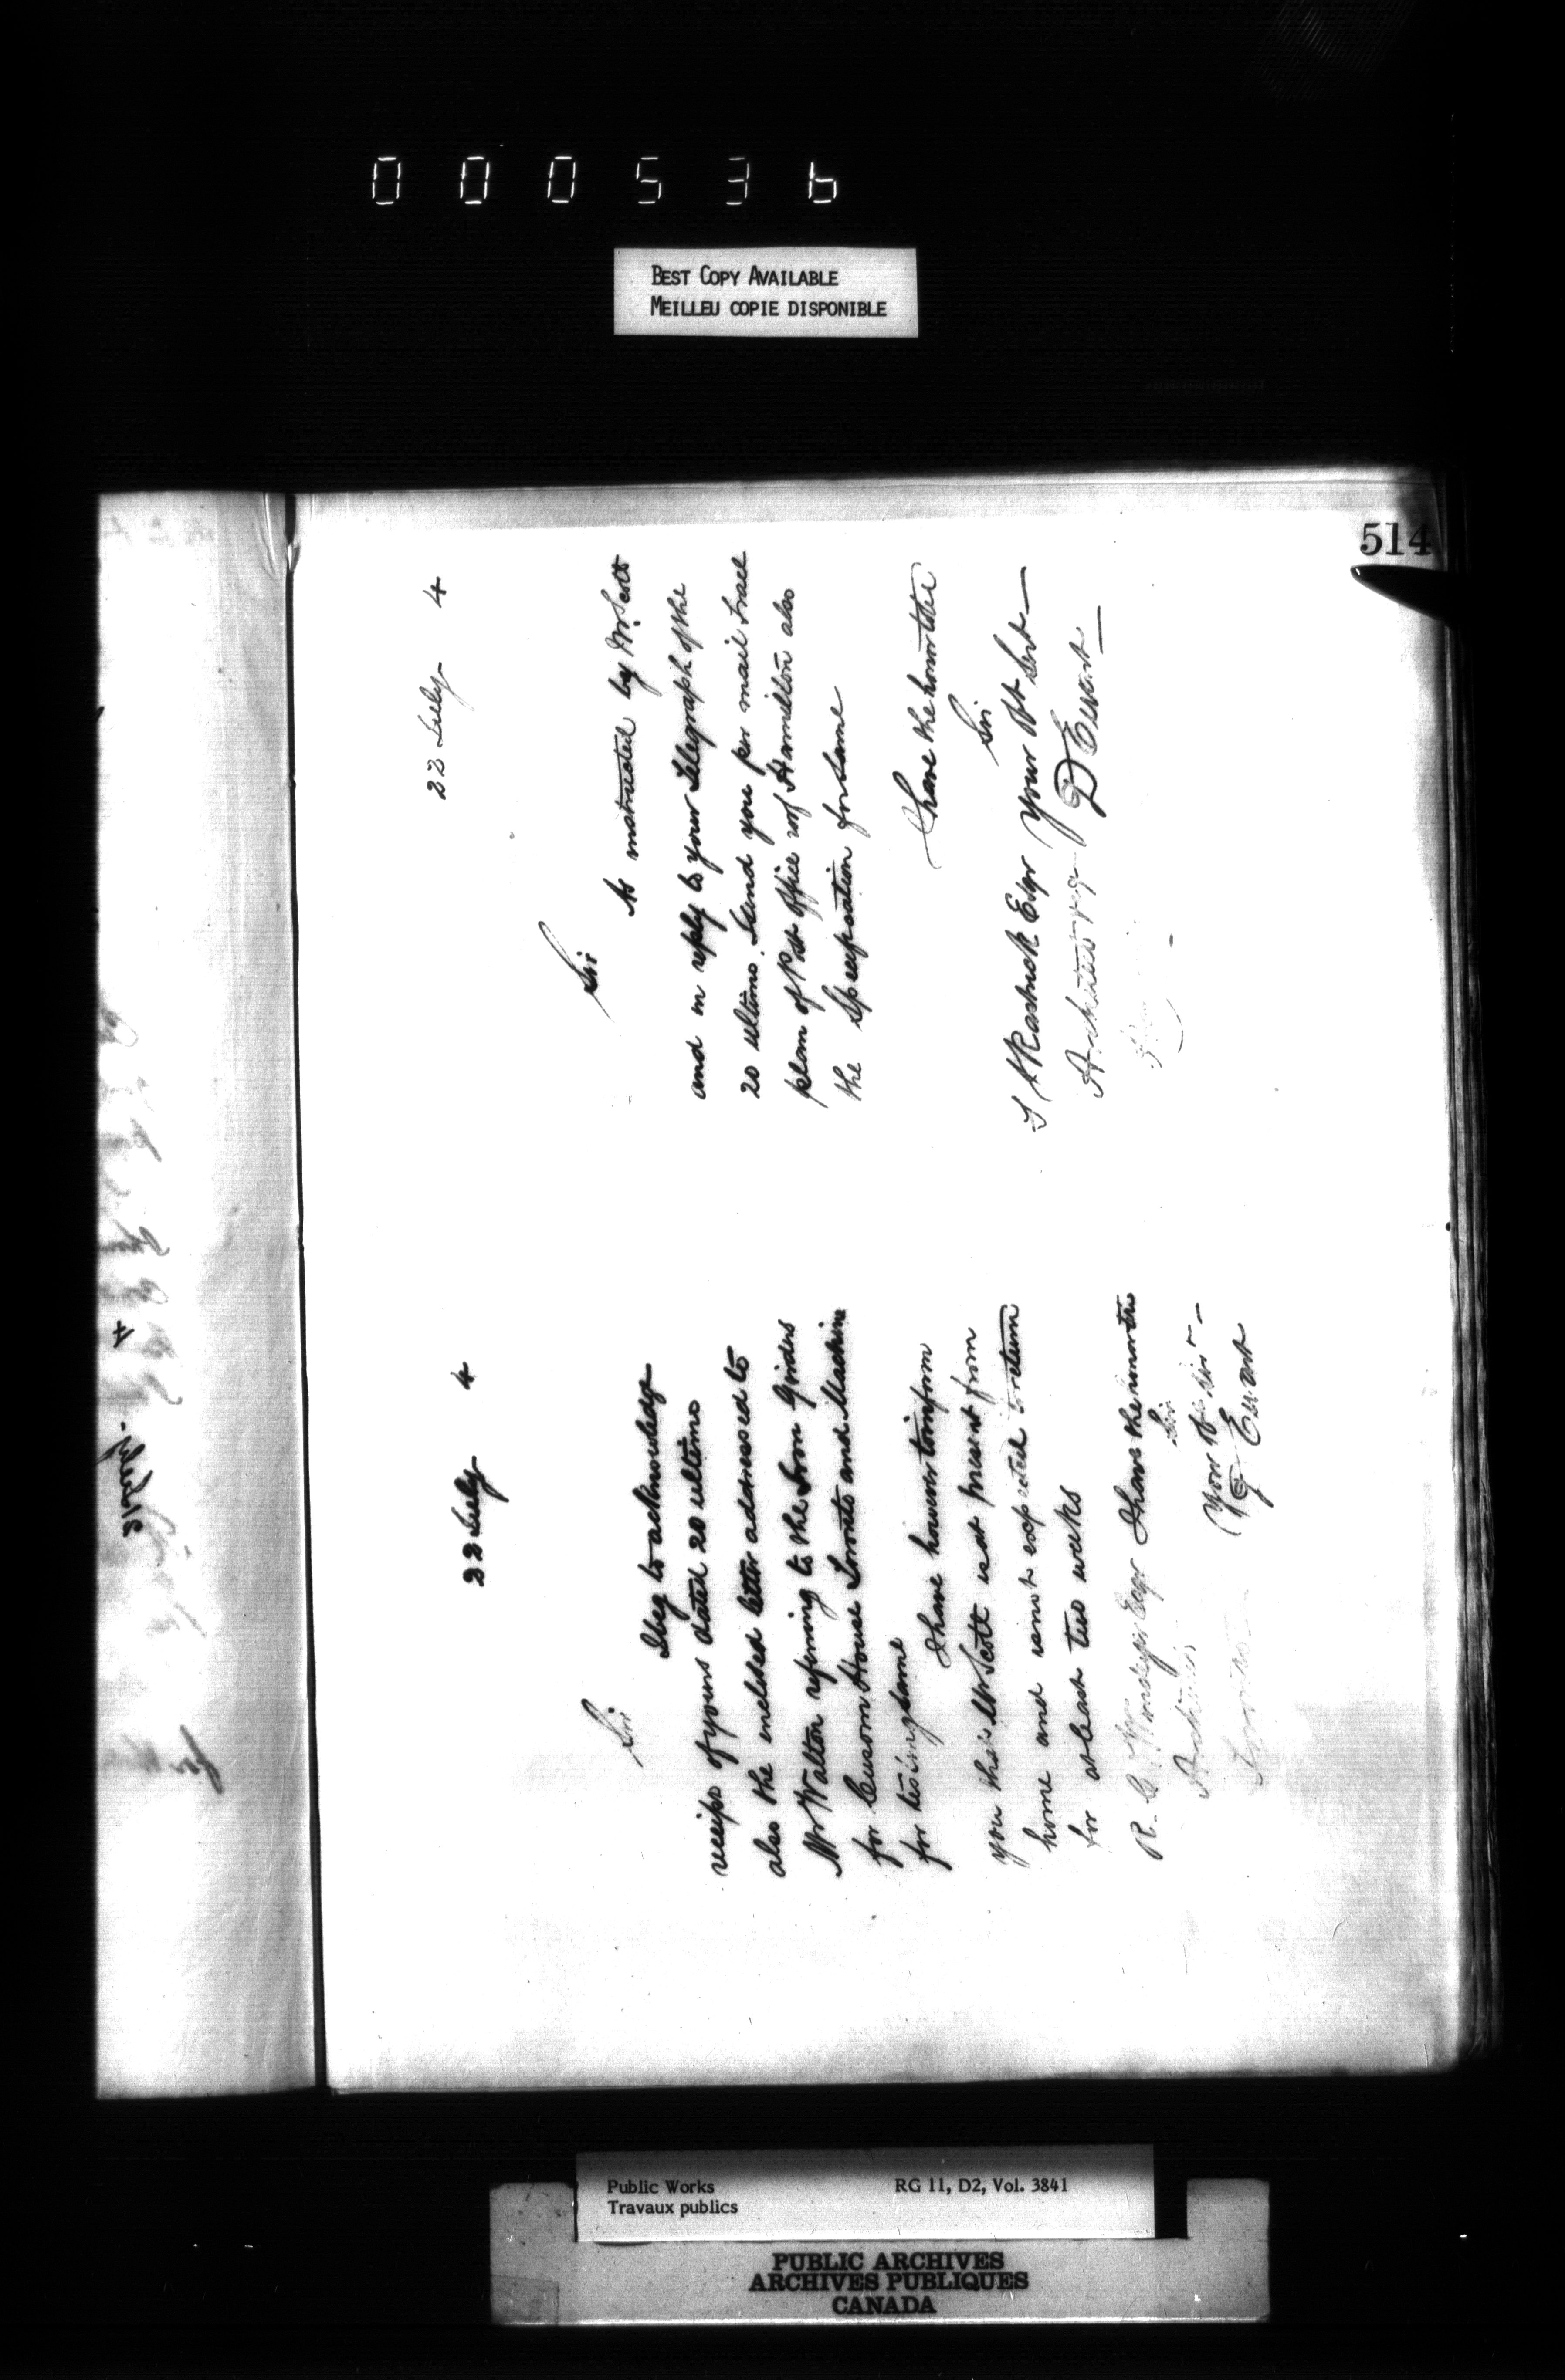 000536
BEST COPY AVAILABLE
MEILLEU COPIE DISPONIBLE
514
21 July 4
22 July 4
Sir
I beg to acknowledge
receipt of yours dated 20 ultimo
also the inclosed letter addressed to
Mr Walton referring to the Iron Girders
for Custom House Toronto and Machine
for testing same
I have however to inform
you that Mr Scott is at present from
home and is not expected to return
for at least two weeks
I have the honor to be
Sir
Your Obt Sert
D Ewart
R. C. Windeyer Esqr
Architect
Toronto
22 July 4
Sir
As instructed by Mr Scott
and in reply to your Telegraph of the
20 ultimo. I send you per mail trace
plan of Post Office roof Hamilton also
the specification for same
I have the honor to be
Sir
Your Obt Sert
D Ewart
F Rastrick Esqr
Public Works
Travaux publics
RG 11, D2, Vol. 3841
PUBLIC ARCHIVES
ARCHIVES PUBLIQUES
CANADA